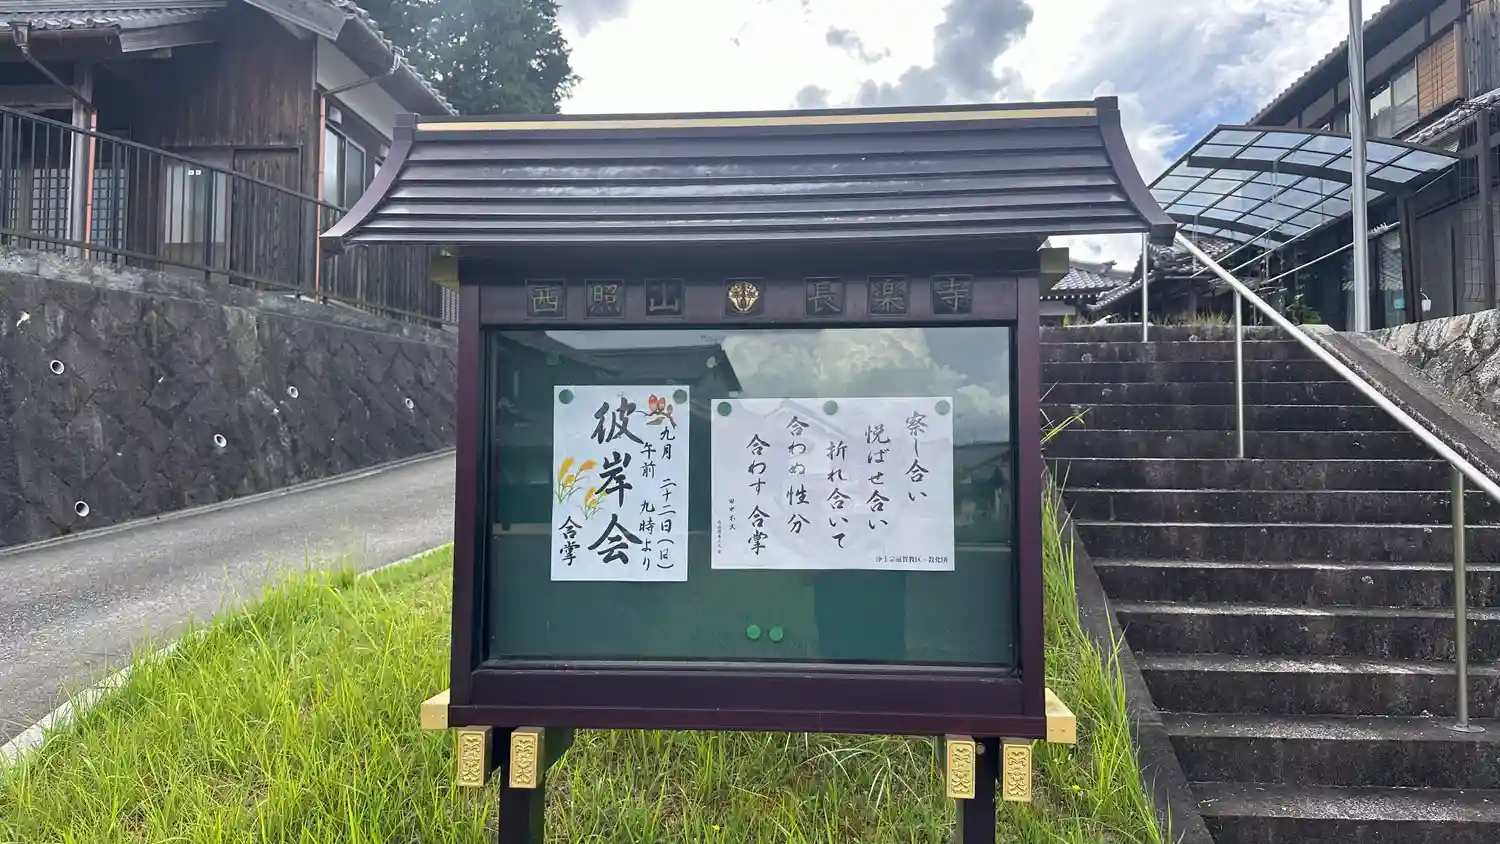 西照山 長楽寺
察し合い
悦ばせ合い
折れ合いて
合わぬ性分
合わす合掌
田中木又
浄土宗滋賀教区・教化団
九月 二十二日(日)
午前 九時より
彼岸会
合掌